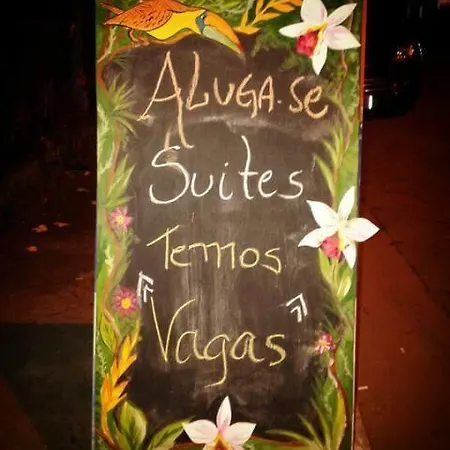 ALUGA-se
Suites
Temos
"Vagas"